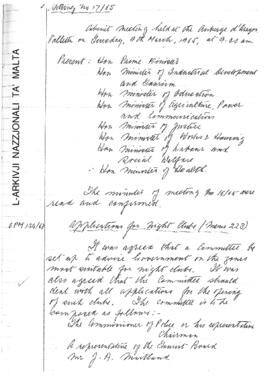 Meeting No 17/65
Cabinet Meeting held at the Auberge d'Aragon
Valletta on Tuesday, 9th March, 1965, at 9.30 am
Present: Hon Prime Minister
Hon Minister of Industrial Development
and Tourism
Hon Minister of Education
Hon Minister of Agriculture, Power
and Communications
Hon Minister of Justice
Hon Minister of Works & Housing
Hon Minister of Labour and
Social Welfare
Hon Minister of Health
The minutes of meeting No 16/65 were
read and confirmed.
Applications for Night Clubs (Memo 223)
OPM 120/64
It was agreed that a Committee be
set up to advise Government on the zones
most suitable for night clubs. It was
also agreed that the Committee should
deal with all applications for the opening
of such clubs. The committee is to be
composed as follows:-
The Commissioner of Police or his representative
Chairman
A representative of the Tourist Board
Mr J. A. Maitland
L-ARKIVJI NAZZJONALI TA' MALTA